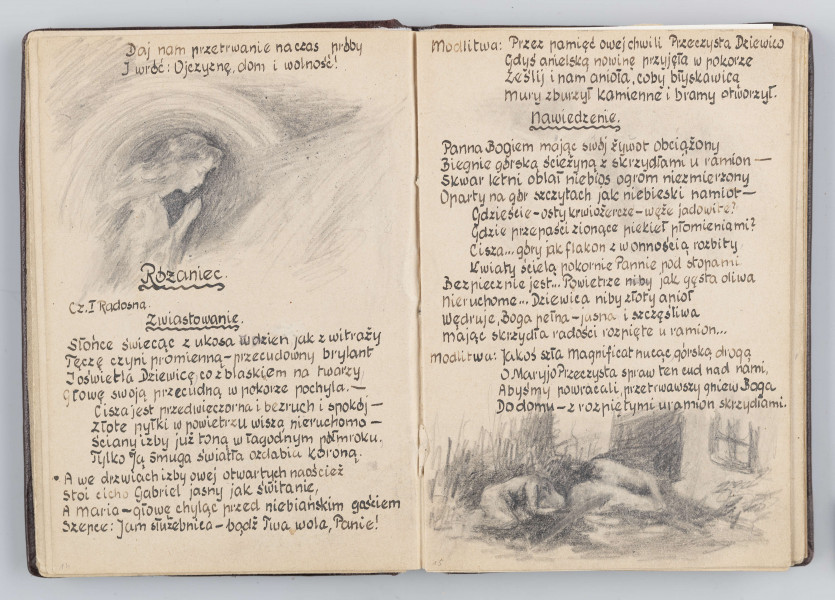 Daj nam przetrwanie na czas próby
I wróć: Ojczyznę, dom i wolność!
Różaniec.
Cz. I Radosna.
Zwiastowanie.
Słońce świecąc z ukosa w dzień jak z witraży
Tęczę czyni promienną – przecudowny brylant
I oświetla Dziewicę co z blaskiem na twarzy
Głowę swoją przecudną w pokorze pochyla. –
Cisza jest przedwieczorna i bezruch i spokój –
Złote pyłki w powietrzu wiszą nieruchomo –
Ściany izby już toną w łagodnym półmroku.
Tylko Ją smuga światła ozdabia koroną.
A we drzwiach izby owej otwartych naoścież
Stoi cicho Gabriel jasny jak świtanie,
A Maria – głowę chyląc przed niebiańskim gościem
Szepce: Jam służebnica – bądź Twa wola, Panie!
Modlitwa: Przez pamięć owej chwili Przeczysta Dziewico
Gdyś anielską nowinę przyjęła w pokorze
Ześlij i nam anioła, coby błyskawicą
Mury zburzył kamienne i bramy otworzył.
Nawiedzenie.
Panna Bogiem mając swój żywot obciążony
Biegnie górską ścieżyną z skrzydłami u ramion –
Skwar letni oblał niebios ogrom niezmierzony
Oparty na gór szczytach jak niebieski namiot –
Gdzieście – osty krwiożercze – węże jadowite?
Gdzie przepaści zionące piekieł płomieniami?
Cisza... góry jak flakon z wonnością rozbity
Kwiaty ścielą pokornie Pannie pod stopami
Bezpiecznie jest... Powietrze niby jak gęsta oliwa
Nieruchome... Dziewica niby złoty anioł
Wędruje, Boga pełna – jasna i szczęśliwa
Mając skrzydła radości rozpięte u ramion...
Modlitwa: Jakoś szła Magnificat nucąc górską drogą
O Maryjo Przeczysta spraw ten cud nad nami,
Abyśmy powracali, przetrwawszy gniew Boga
Do domu – z rozpiętymi u ramion skrzydłami.